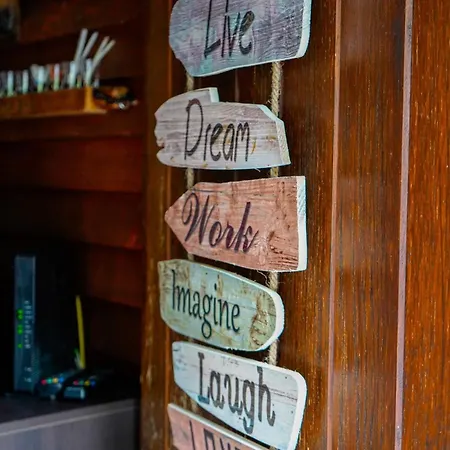 Live
Dream
Work
Imagine
Laugh